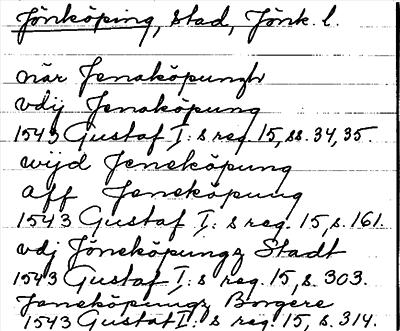 Jönköping, stad, Jönk. l.
når Jenaköpungh
vdij Jenaköpung
1543 Gustaf I:s reg. 15, ss. 34, 35.
wijd Jeneköpung
aff Jeneköpung
1543 Gustaf I:s reg. 15, s. 161.
vdj Jöneköpungz Stadt
1543 Gustaf I:s reg. 15, s. 303.
Janeköpungz Borgere
1543 Gustaf I:s reg. 15, s. 314.